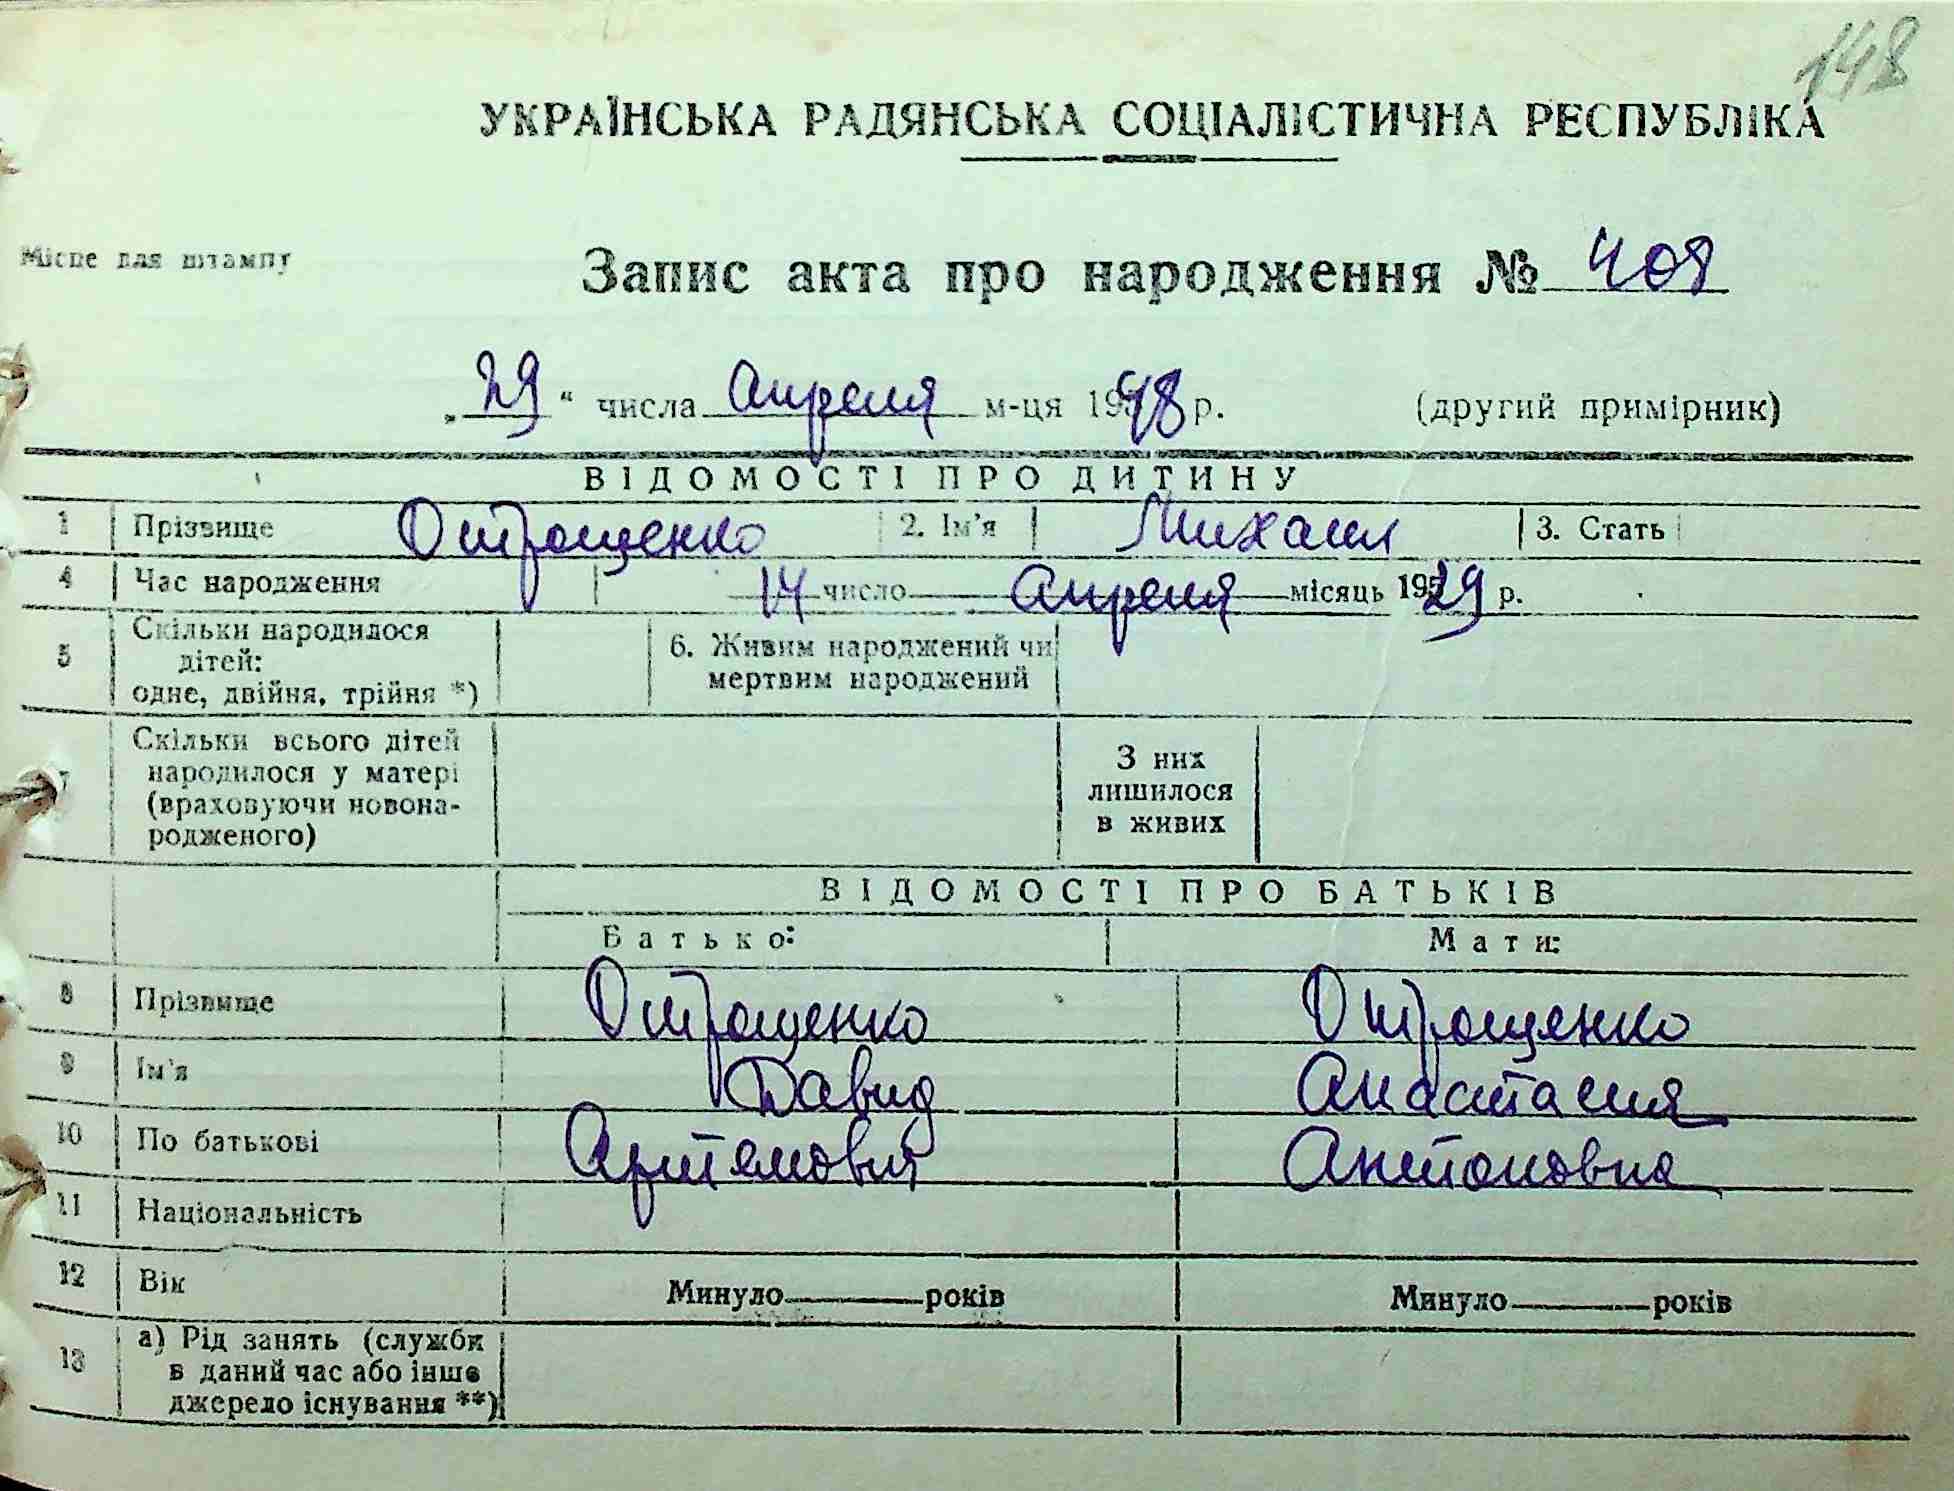 148
УКРАЇНСЬКА РАДЯНСЬКА СОЦІАЛІСТИЧНА РЕСПУБЛІКА
Місце для штампу
Запис акта про народження № 408
„29“ числа Апреля м-ця 1948 р. (другий примірник)
ВІДОМОСТІ ПРО ДИТИНУ
1 Прізвище Отрощенко 2. Ім'я Михаил 3. Стать
4 Час народження 14 число Апреля місяць 1929 р.
5 Скільки народилося дітей: одне, двійня, трійня *) 6. Живим народжений чи мертвим народжений
7 Скільки всього дітей народилося у матері (враховуючи новонародженого) З них лишилося в живих
ВІДОМОСТІ ПРО БАТЬКІВ
Батько: Мати:
8 Прізвище Отрощенко Отрощенко
9 Ім'я Давид Анастасия
10 По батькові Артемович Антоновна
11 Національність
12 Вік Минуло років Минуло років
13 а) Рід занять (служби в даний час або інше джерело існування **)